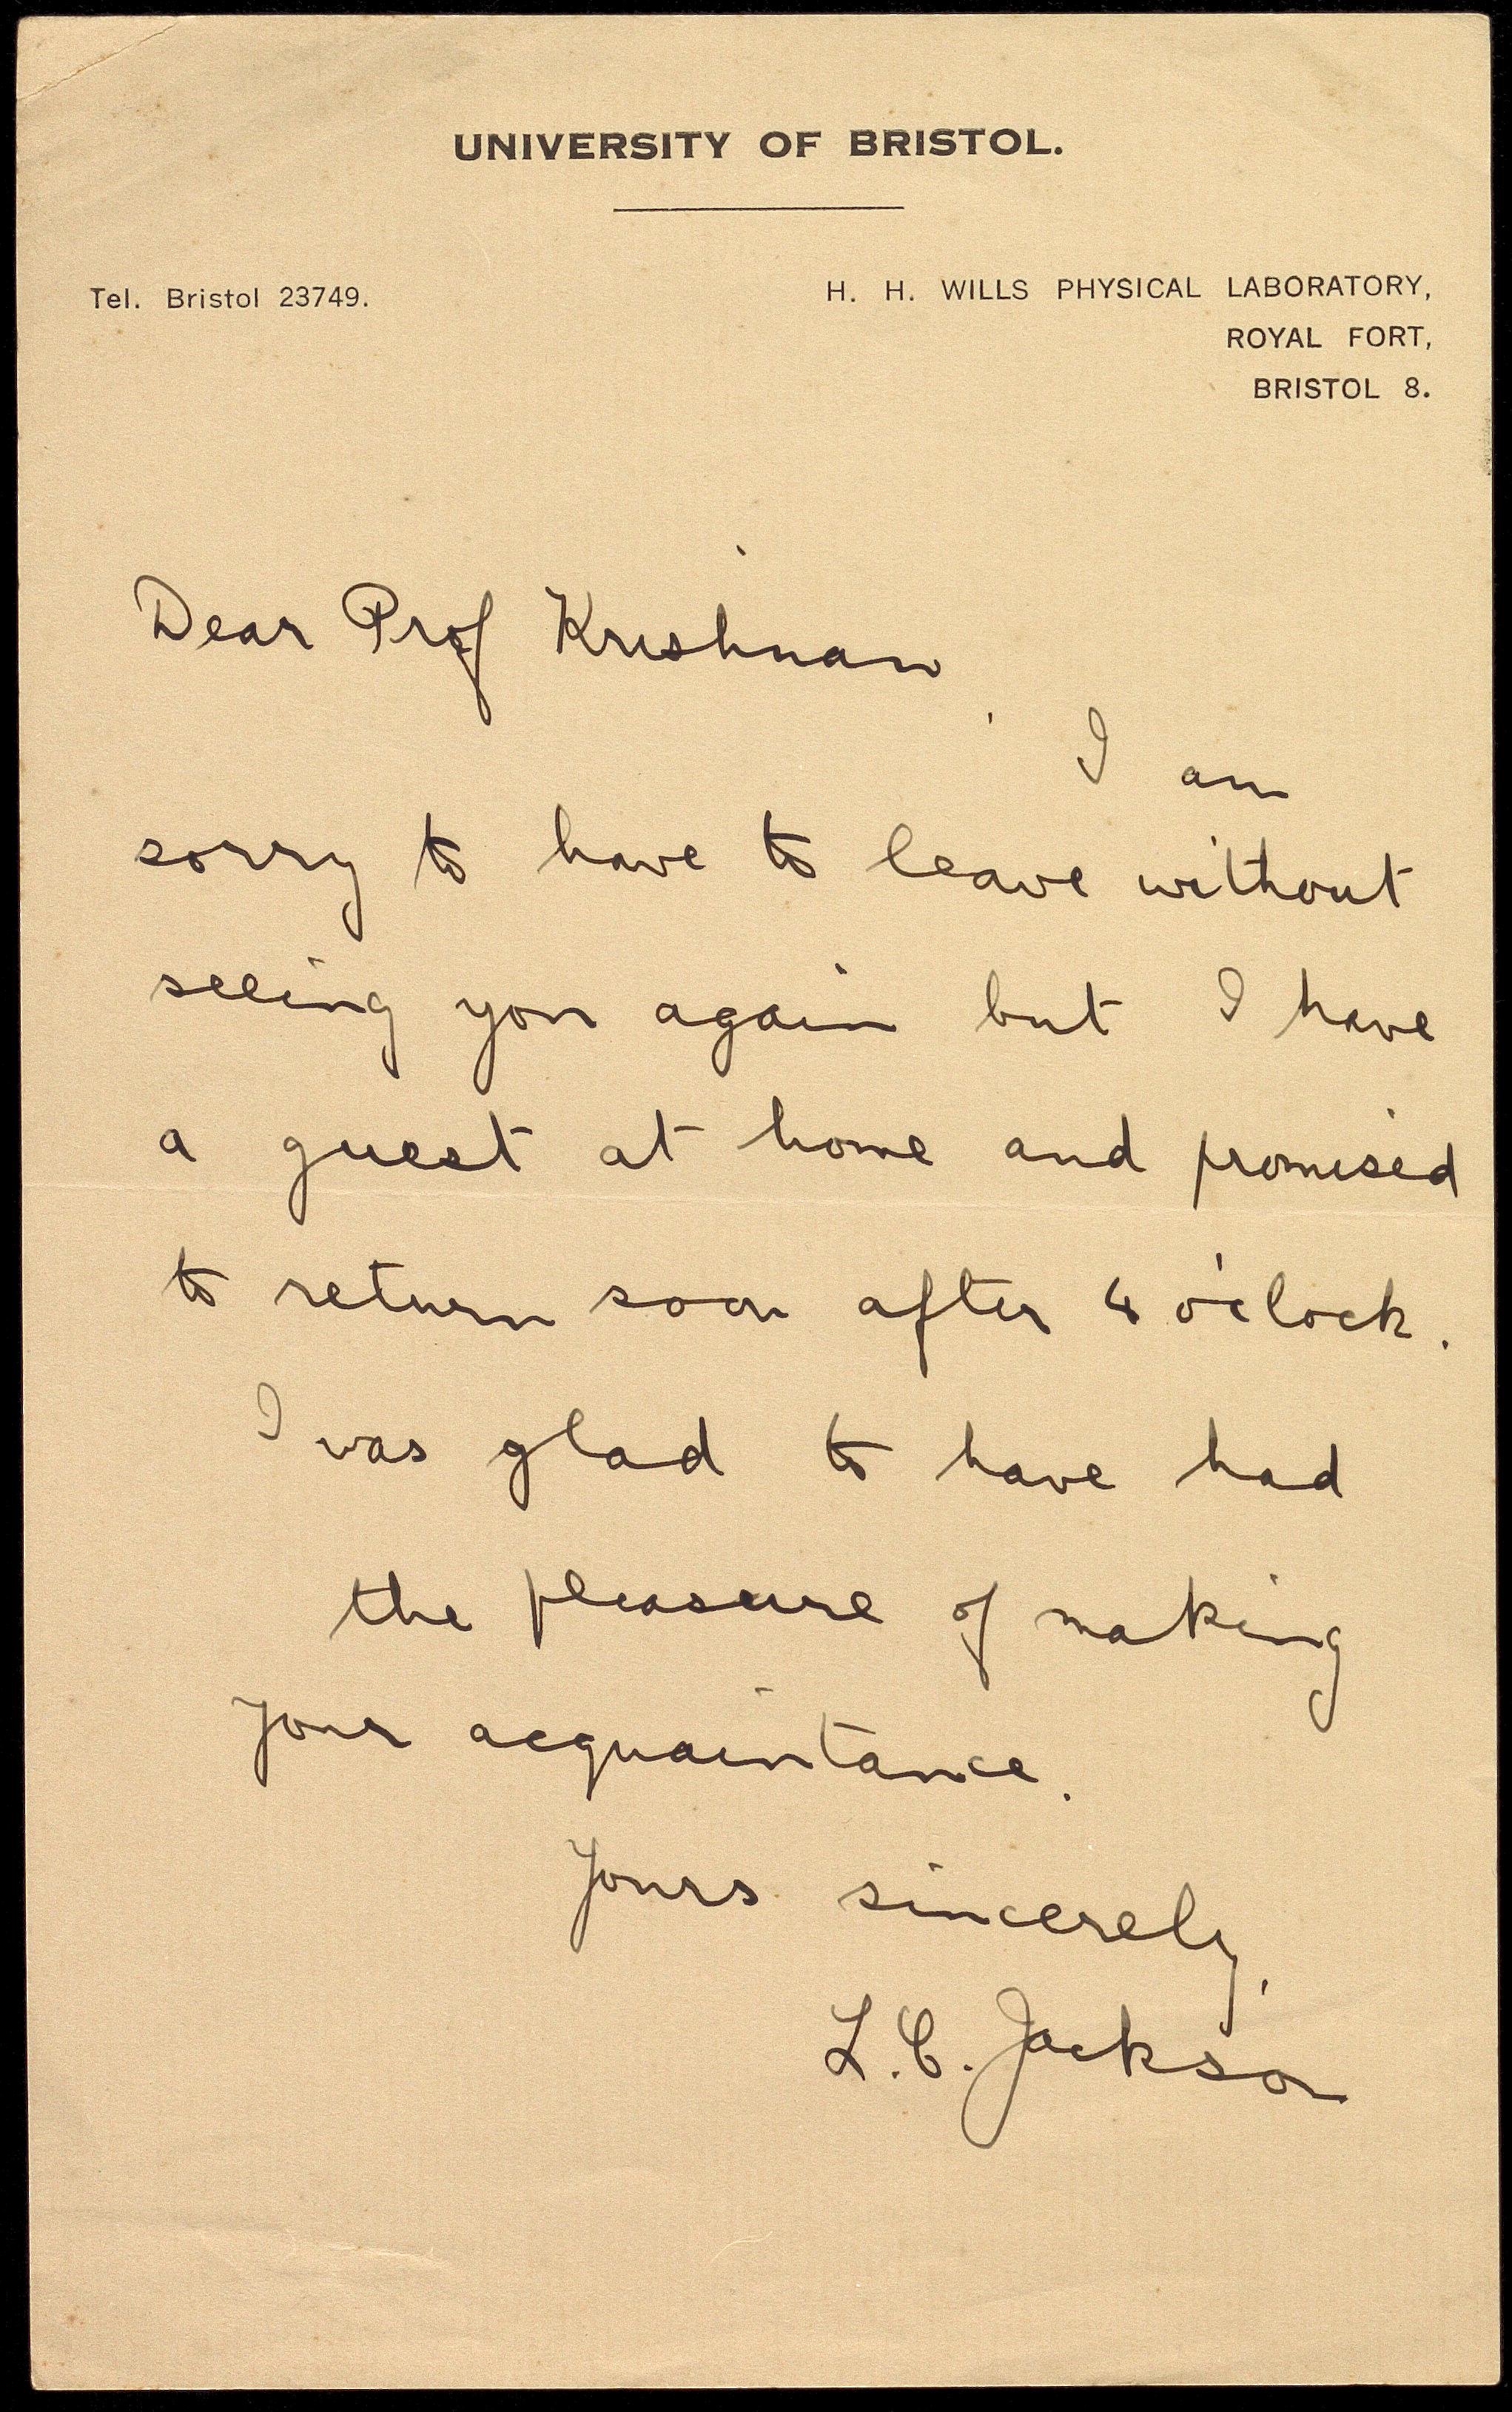 UNIVERSITY OF BRISTOL.
Tel. Bristol 23749.
H. H. WILLS PHYSICAL LABORATORY,
ROYAL FORT,
BRISTOL 8.
Dear Prof Krishnan,
I am
sorry to have to leave without
seeing you again but I have
a guest at home and promised
to return soon after 4 o'clock.
I was glad to have had
the pleasure of making
your acquaintance.
Yours sincerely,
L.C. Jackson